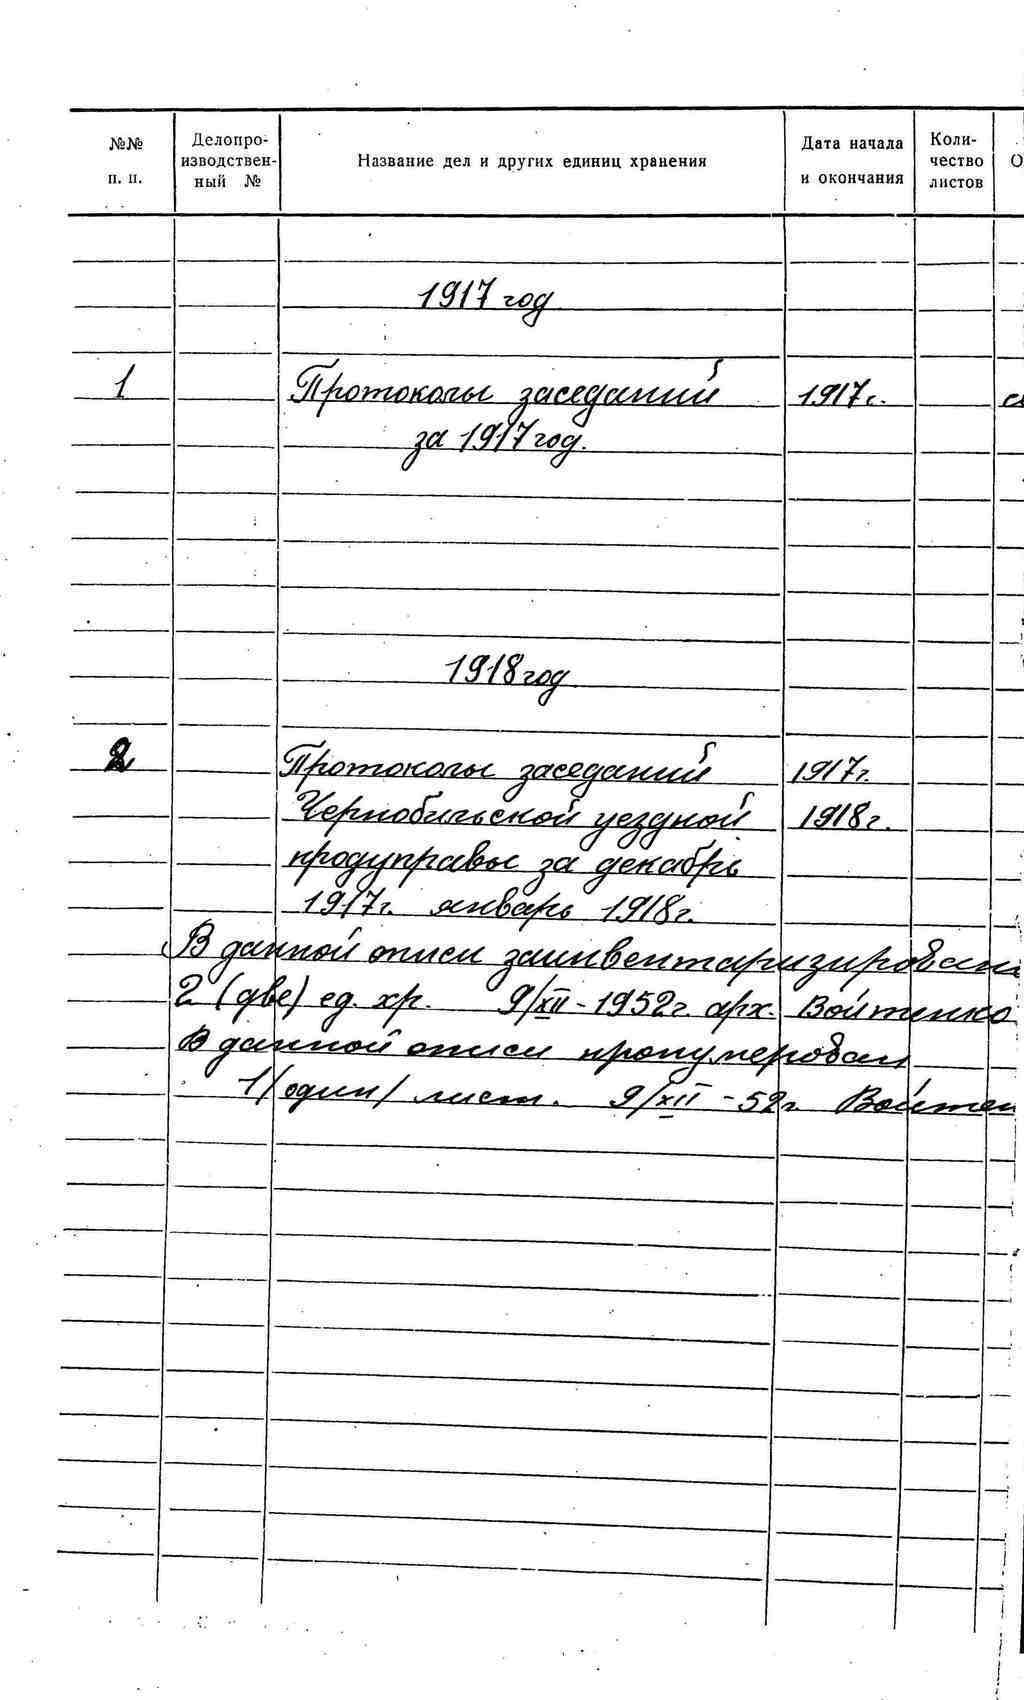 №№ п. п.
Делопро-
изводствен-
ный №
Название дел и других единиц хранения
Дата начала
и окончания
Коли-
чество
листов
О
1917 год
1 Протоколы заседаний 1917г.
за 1917 год.
1918 год
2 Протоколы заседаний 1917г.
Чернобильской уездной 1918г.
продуправы за декабрь
1917г. январь 1918г.
В данной описи заинвентаризирован
2 (две) ед. хр. 9/XII - 1952г. арх. Войтенко
В данной описи пронумерован
1/один/ лист. 9/XII - 52г. Войтен